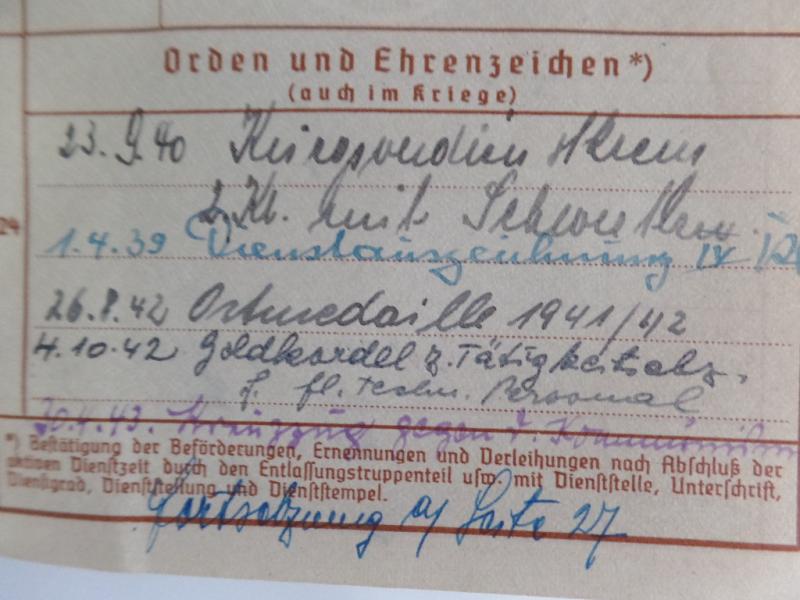 Orden und Ehrenzeichen*)
(auch im Kriege)
23.9.40 Kriegsverdienstkreuz
2. Kl. mit Schwertern
24
1.4.39 Dienstauszeichnung IV. Kl
26.8.42 Ostmedaille 1941/42
4.10.42 Goldkordel z. Tätigkeitsabz.
f. fl. techn. Personal
30.4.43. Kreuzzug gegen d. Kommunismus
*) Bestätigung der Beförderungen, Ernennungen und Verleihungen nach Abschluß der
aktiven Dienstzeit durch den Entlassungstruppenteil usw. mit Dienststelle, Unterschrift,
Dienstgrad, Dienststellung und Dienststempel.
Fortsetzung a/ Seite 27